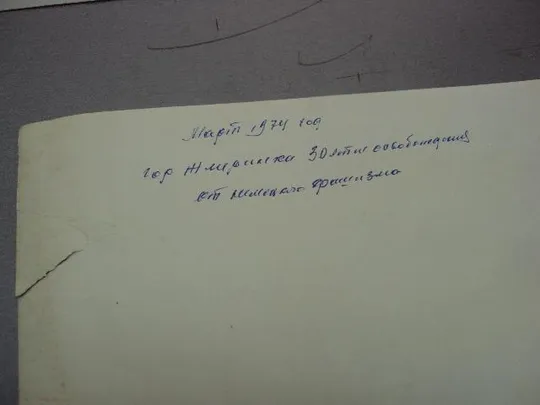 Март 1974 год
гор Жмеринка 30 летие освобождения
от немецкого фашизма